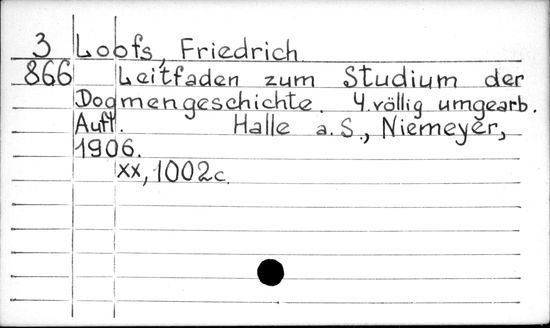 3 Loofs, Friedrich
866 Leitfaden zum Studium der
Dogmengeschichte. 4.völlig umgearb.
Aufl. Halle a.S., Niemeyer,
1906.
xx, 1002c.